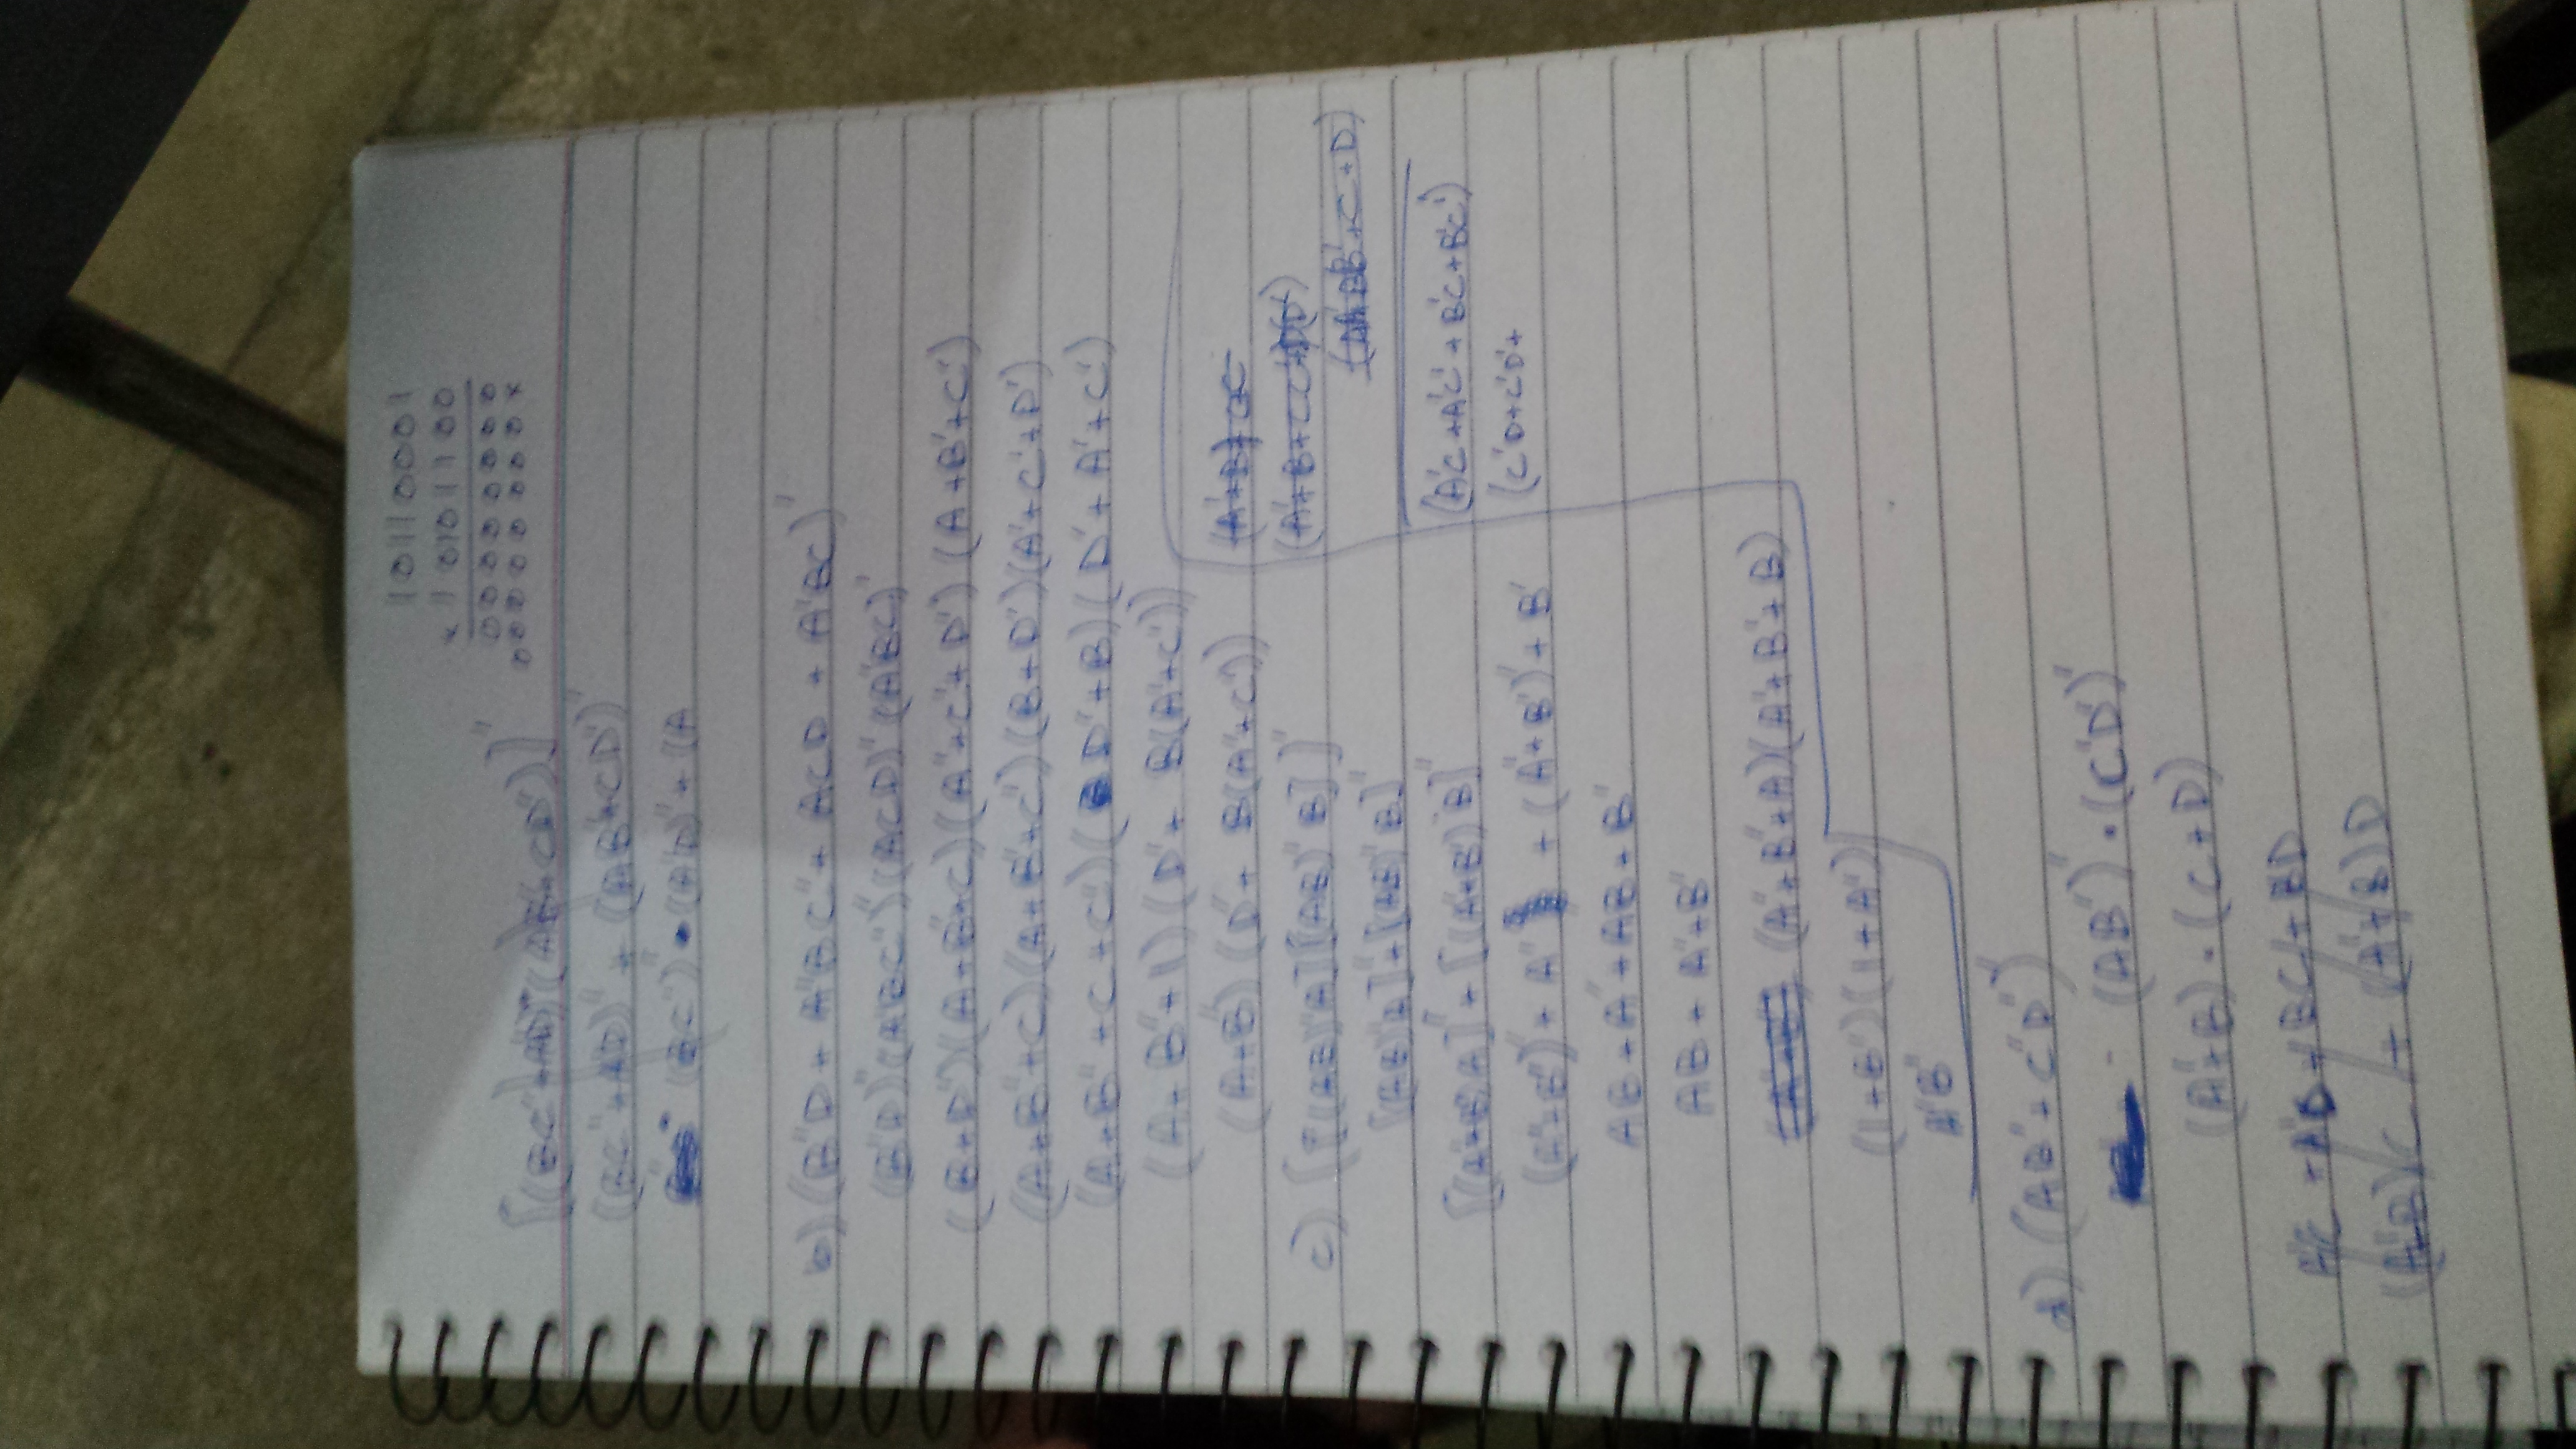 10110001
× 10101100
00000000
00000000×
[(BC'+A'D)'(AB'+CD')]'
(BC'+A'D)' + (AB'+CD')'
(BC')' • (A'D)' + (A
b) (B'D + A'BC' + ACD + A'BC)'
(B'D)'(A'BC')'(ACD)'(A'BC)'
(B+D')(A+B'+C)(A'+C'+D') (A+B'+C')
(A+B'+C)(A+B'+C')(B+D')(A'+C'+D')
(A+B'+C+C')(D'+B)(D'+A'+C')
(A+B'+1)(D'+ B(A'+C'))
(A+B')(D'+ B(A'+C'))
c) [[(AB)'A][(AB)'B]]'
[(AB)'A]'+[(AB)'B]'
[(A'+B')A]'+[(A'+B')B]'
(A'+B')'+A' + (A'+B')'+B'
AB+A'+AB+B'
AB + A'+B'
(A'+B'+A)(A'+B'+B)
(1+B')(1+A')
A'B'
(A'C+A'C'+B'C+B'C')
(C'D+C'D'+
d) (AB'+C'D')'
(AB')'•(C'D')'
(A'+B)•(C+D)
A'C + A'D + BC + BD
(A'+B)C + (A'+B)D